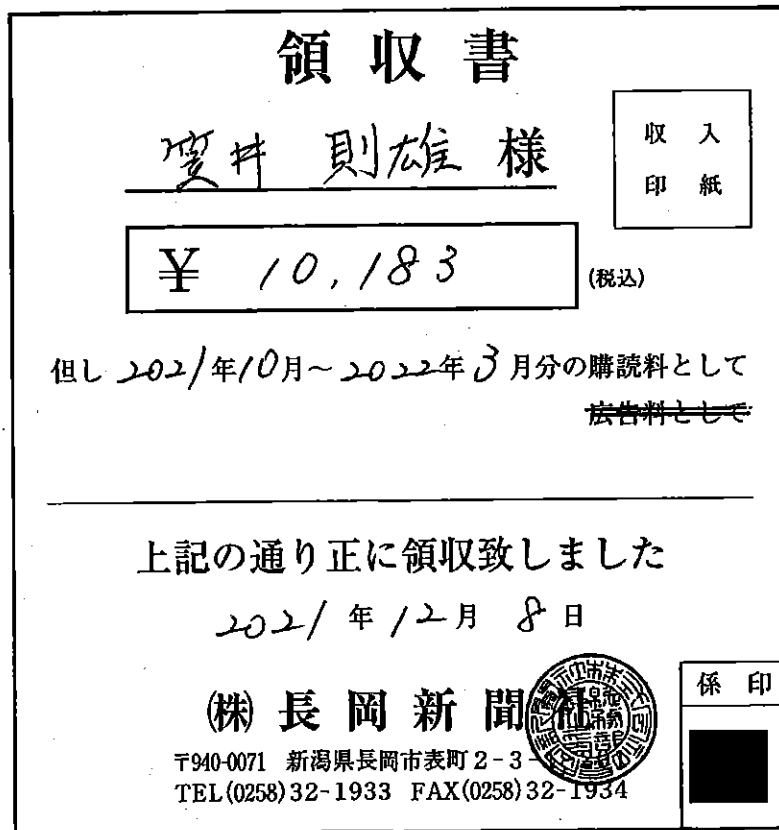 領収書
笠井 則雄 様
収入
印紙
¥ 10,183
(税込)
但し 2021年10月～2022年3月分の購読料として
広告料として
上記の通り正に領収致しました
2021年12月8日
(株)長岡新聞社
係印
〒940-0071 新潟県長岡市表町2-3-
TEL(0258)32-1933 FAX(0258)32-1934